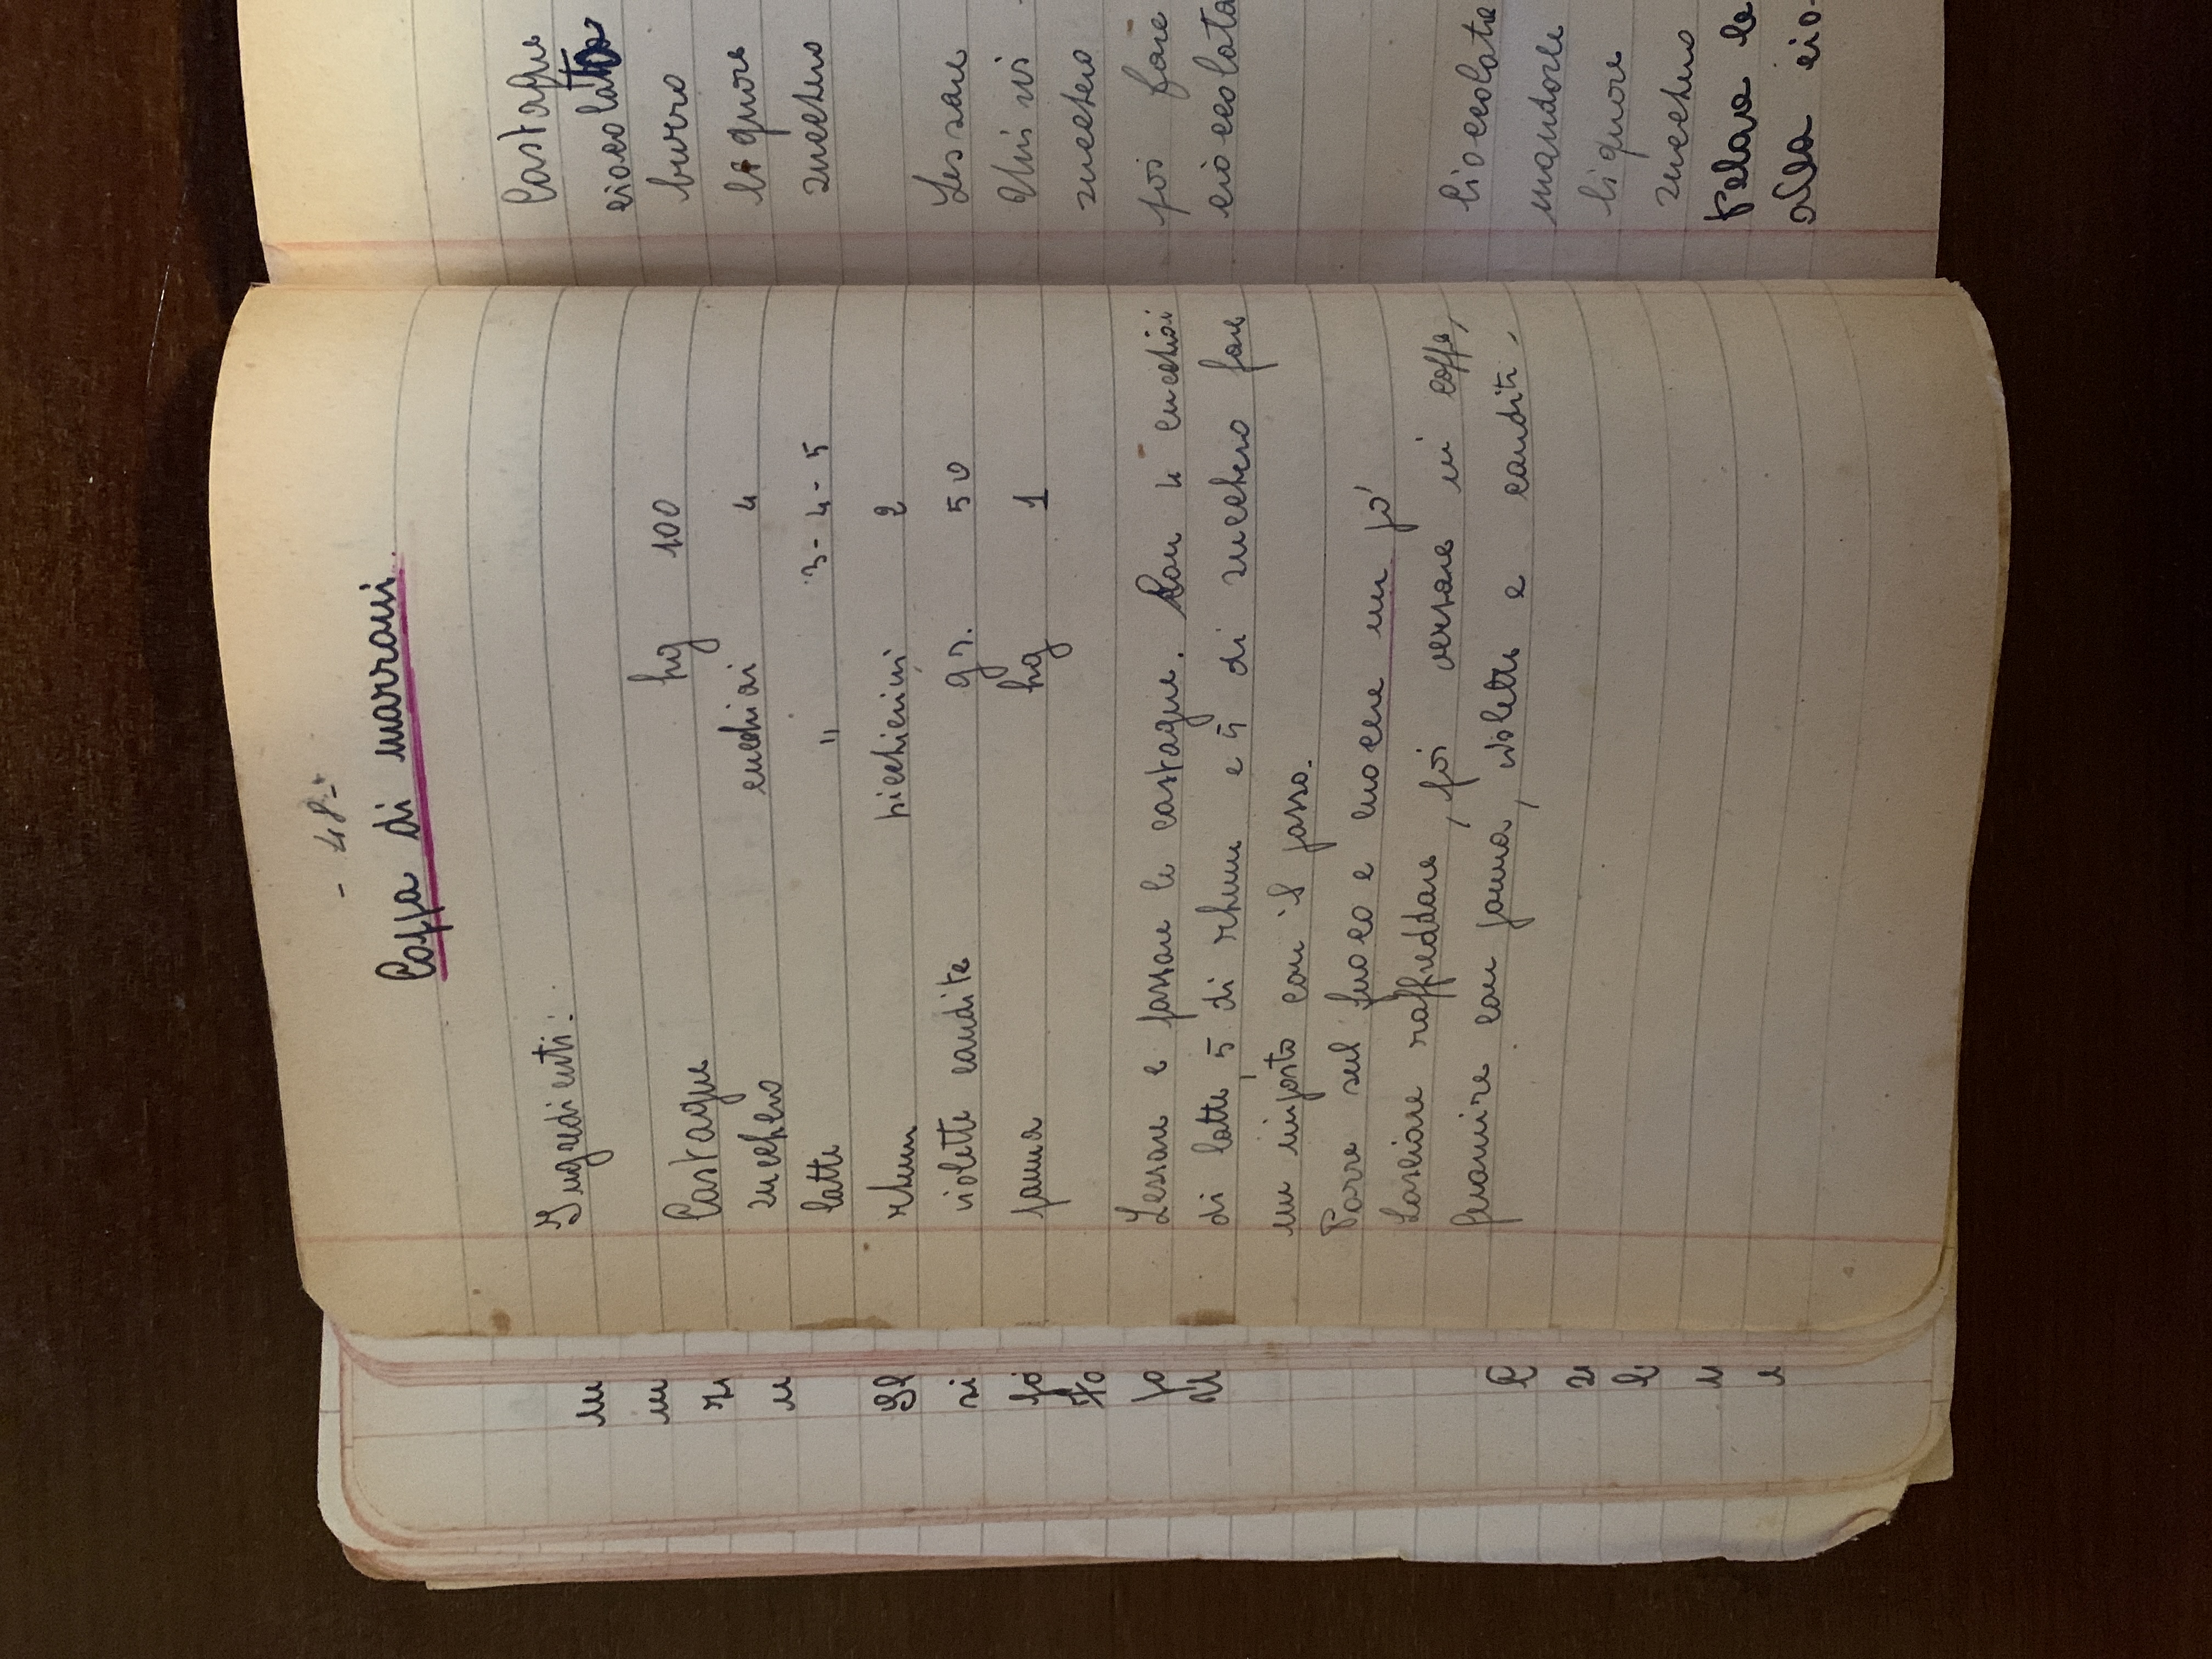 - 48 -
Coppa di marroni.
Ingredienti:
Castagne hg 100
zucchero cucchiai 4
latte " 3-4-5
rhum bicchierini 2
violette candite gr. 50
panna hg 1
Lessare e passare le castagne. Con 4 cucchiai
di latte, 5 di rhum e 5 di zucchero fare
un imposto con il passo.
Porre sul fuoco e cuocere un po'
Lasciare raffreddare, poi versare in coppe,
guarnire con panna, violette e canditi.
Castagne
cioccolata
burro
liquore
zucchero
Lessare
Unirvi
zucchero
poi fare
cioccolata
Cioccolata
mandorle
liquore
zucchero
Pelare le
alla cio-